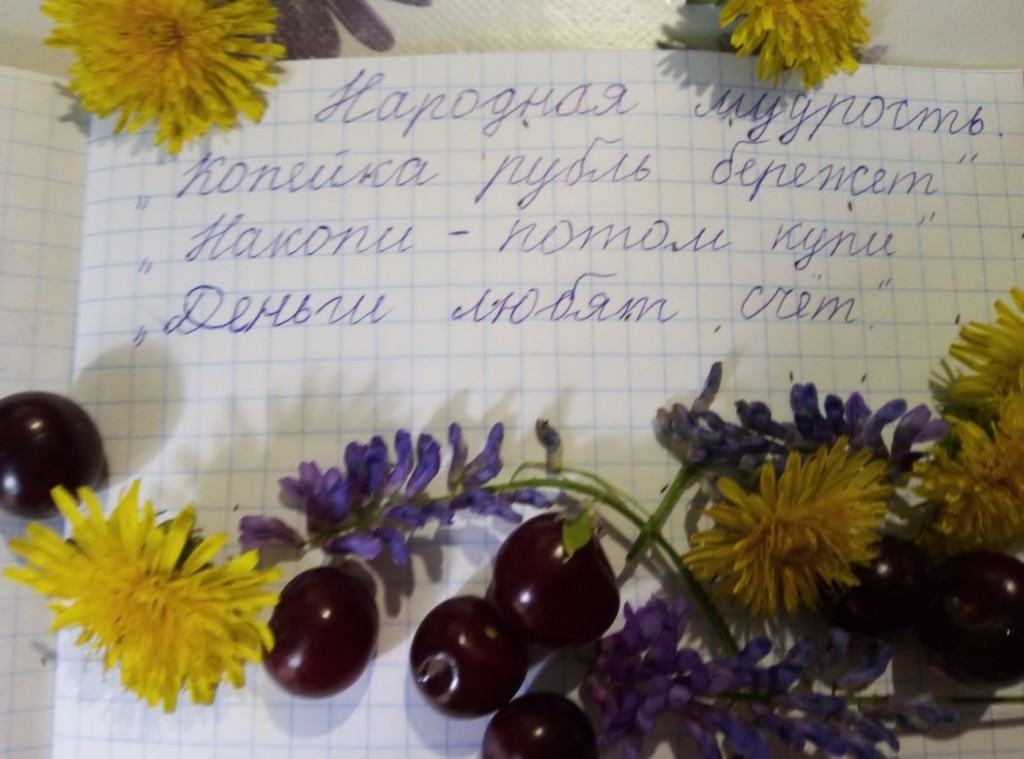 Народная мудрость.
„Копейка рубль бережет"
„Накопи - потом купи"
„Деньги любят счёт."